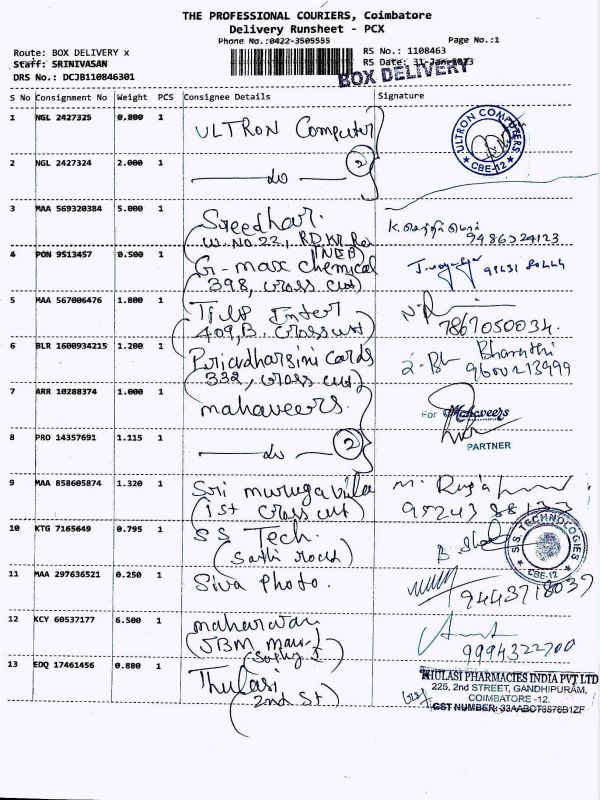 THE PROFESSIONAL COURIERS, Coimbatore
Delivery Runsheet - PCX
Phone No.:0422-3505555
Page No.:1
Route: BOX DELIVERY x
RS No.: 1108463
Staff: SRINIVASAN
RS Date: 31-Jan-2023
BOX DELIVERY
DRS No.: DCJB110846301
S No Consignment No Weight PCS Consignee Details Signature
1 NGL 2427325 0.800 1 ULTRON Computer
ULTRON COMPUTERS CBE-12
2 NGL 2427324 2.000 1 do 2
3 MAA 569320384 5.000 1 Sreedhar.
9486324123
4 PON 9513457 0.500 1 G-max chemical
(398, cross cut)
5 MAA 567006476 1.800 1
409,B, cross cut)
7867050034.
6 BLR 1600934215 1.200 1 Priyadharsini cards
(332, cross cut)
Bharathi
7 ARR 10288374 1.000 1 mahaveers.
For Mahaveers
PARTNER
8 PRO 14357691 1.115 1 do 2
9 MAA 858605874 1.320 1 Sri murugavilas
(1st cross cut)
10 KTG 7165649 0.795 1 SS Tech.
S.S. TECHNOLOGIES CBE-12
11 MAA 297636521 0.250 1 Siva Photo.
9443718039
12 KCY 60537177 6.500 1
9994322700
13 EDQ 17461456 0.880 1 Thulasi
(2nd st)
THULASI PHARMACIES INDIA PVT LTD
225, 2nd STREET, GANDHIPURAM,
COIMBATORE -12.
GST NUMBER: 33AABCT6876B1ZF